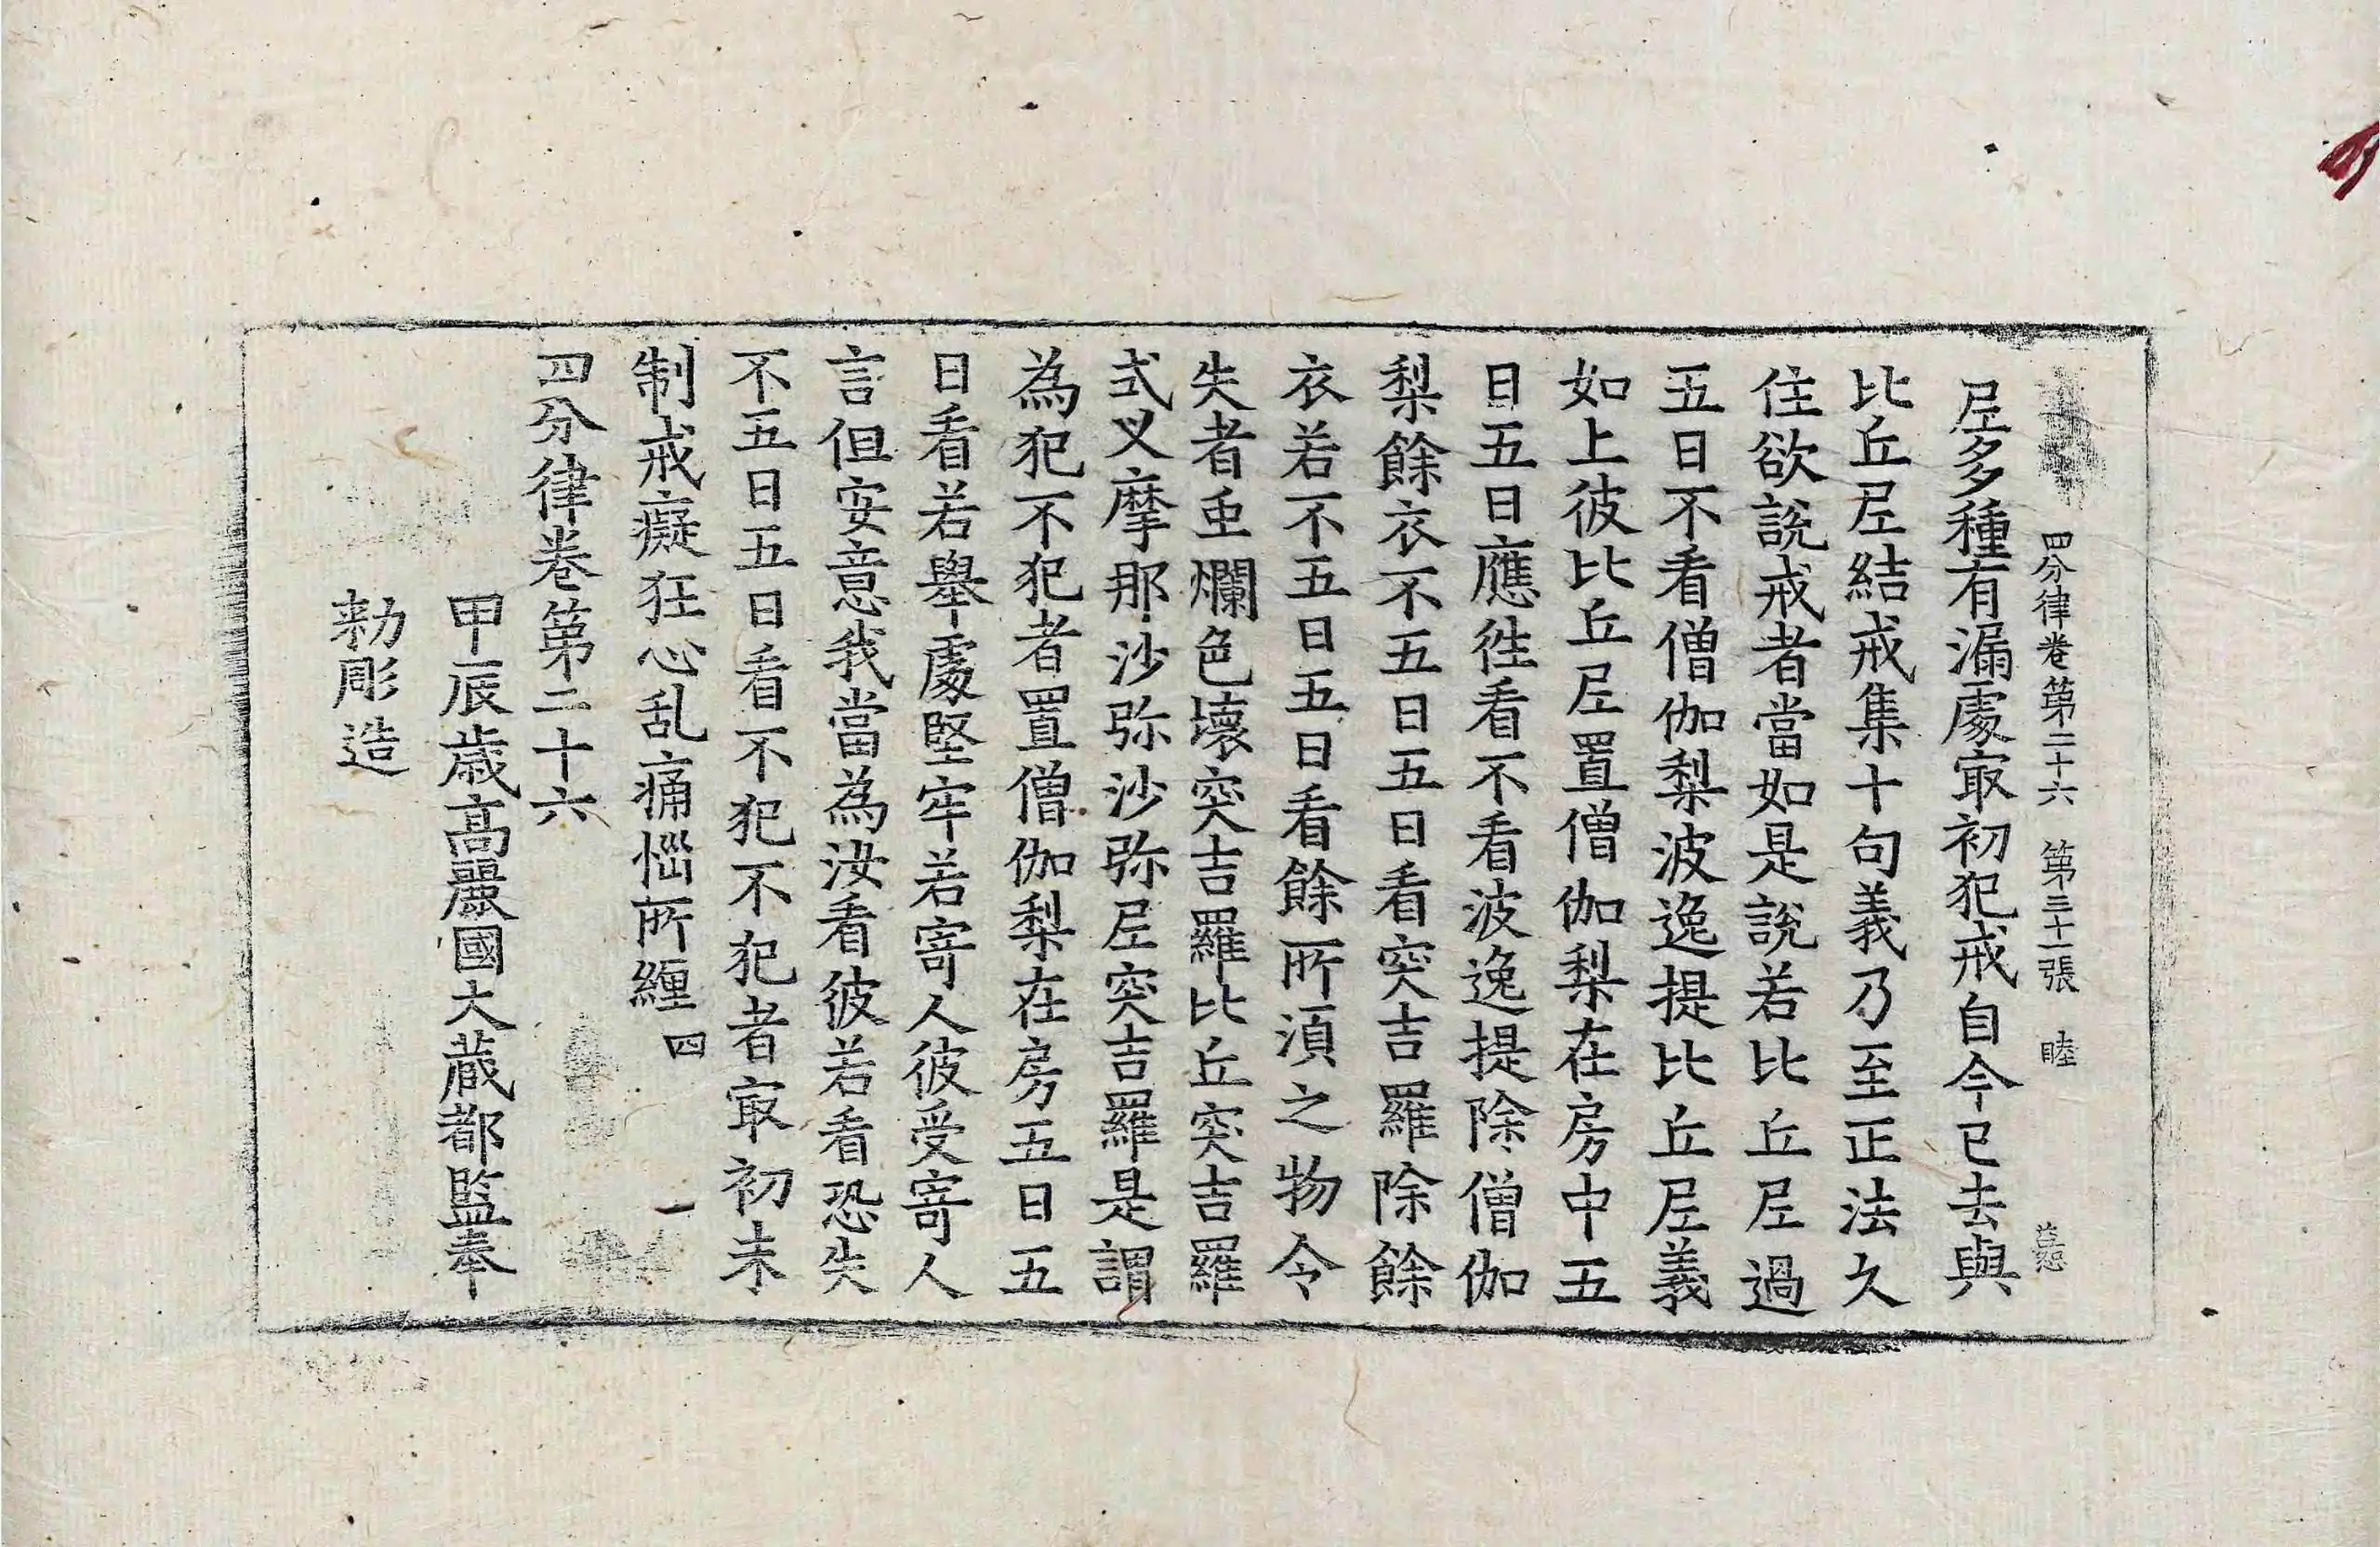 四分律卷第二十六　第三十一張　睦
𡰱多種有漏處㝡初犯戒自今已去與
比丘𡰱結戒集十句義乃至正法久
住欲說戒者當如是說若比丘𡰱過
五日不看僧伽梨波逸提比丘𡰱義
如上彼比丘𡰱置僧伽梨在房中五
日五日應徃看不看波逸提除僧伽
梨餘衣不五日五日看突吉羅除餘
衣若不五日五日看餘所須之物令
失者虫爛色壞突吉羅比丘突吉羅
式叉摩那沙弥沙弥𡰱突吉羅是謂
為犯不犯者置僧伽梨在房五日五
日看若舉處堅牢若寄人彼受寄人
言但安意我當為汝看彼若看恐失
不五日五日看不犯不犯者㝡初未
制戒癡狂心乱痛惱所纏 四 一
四分律卷第二十六
甲辰歲高麗國大藏都監奉
勑彫造